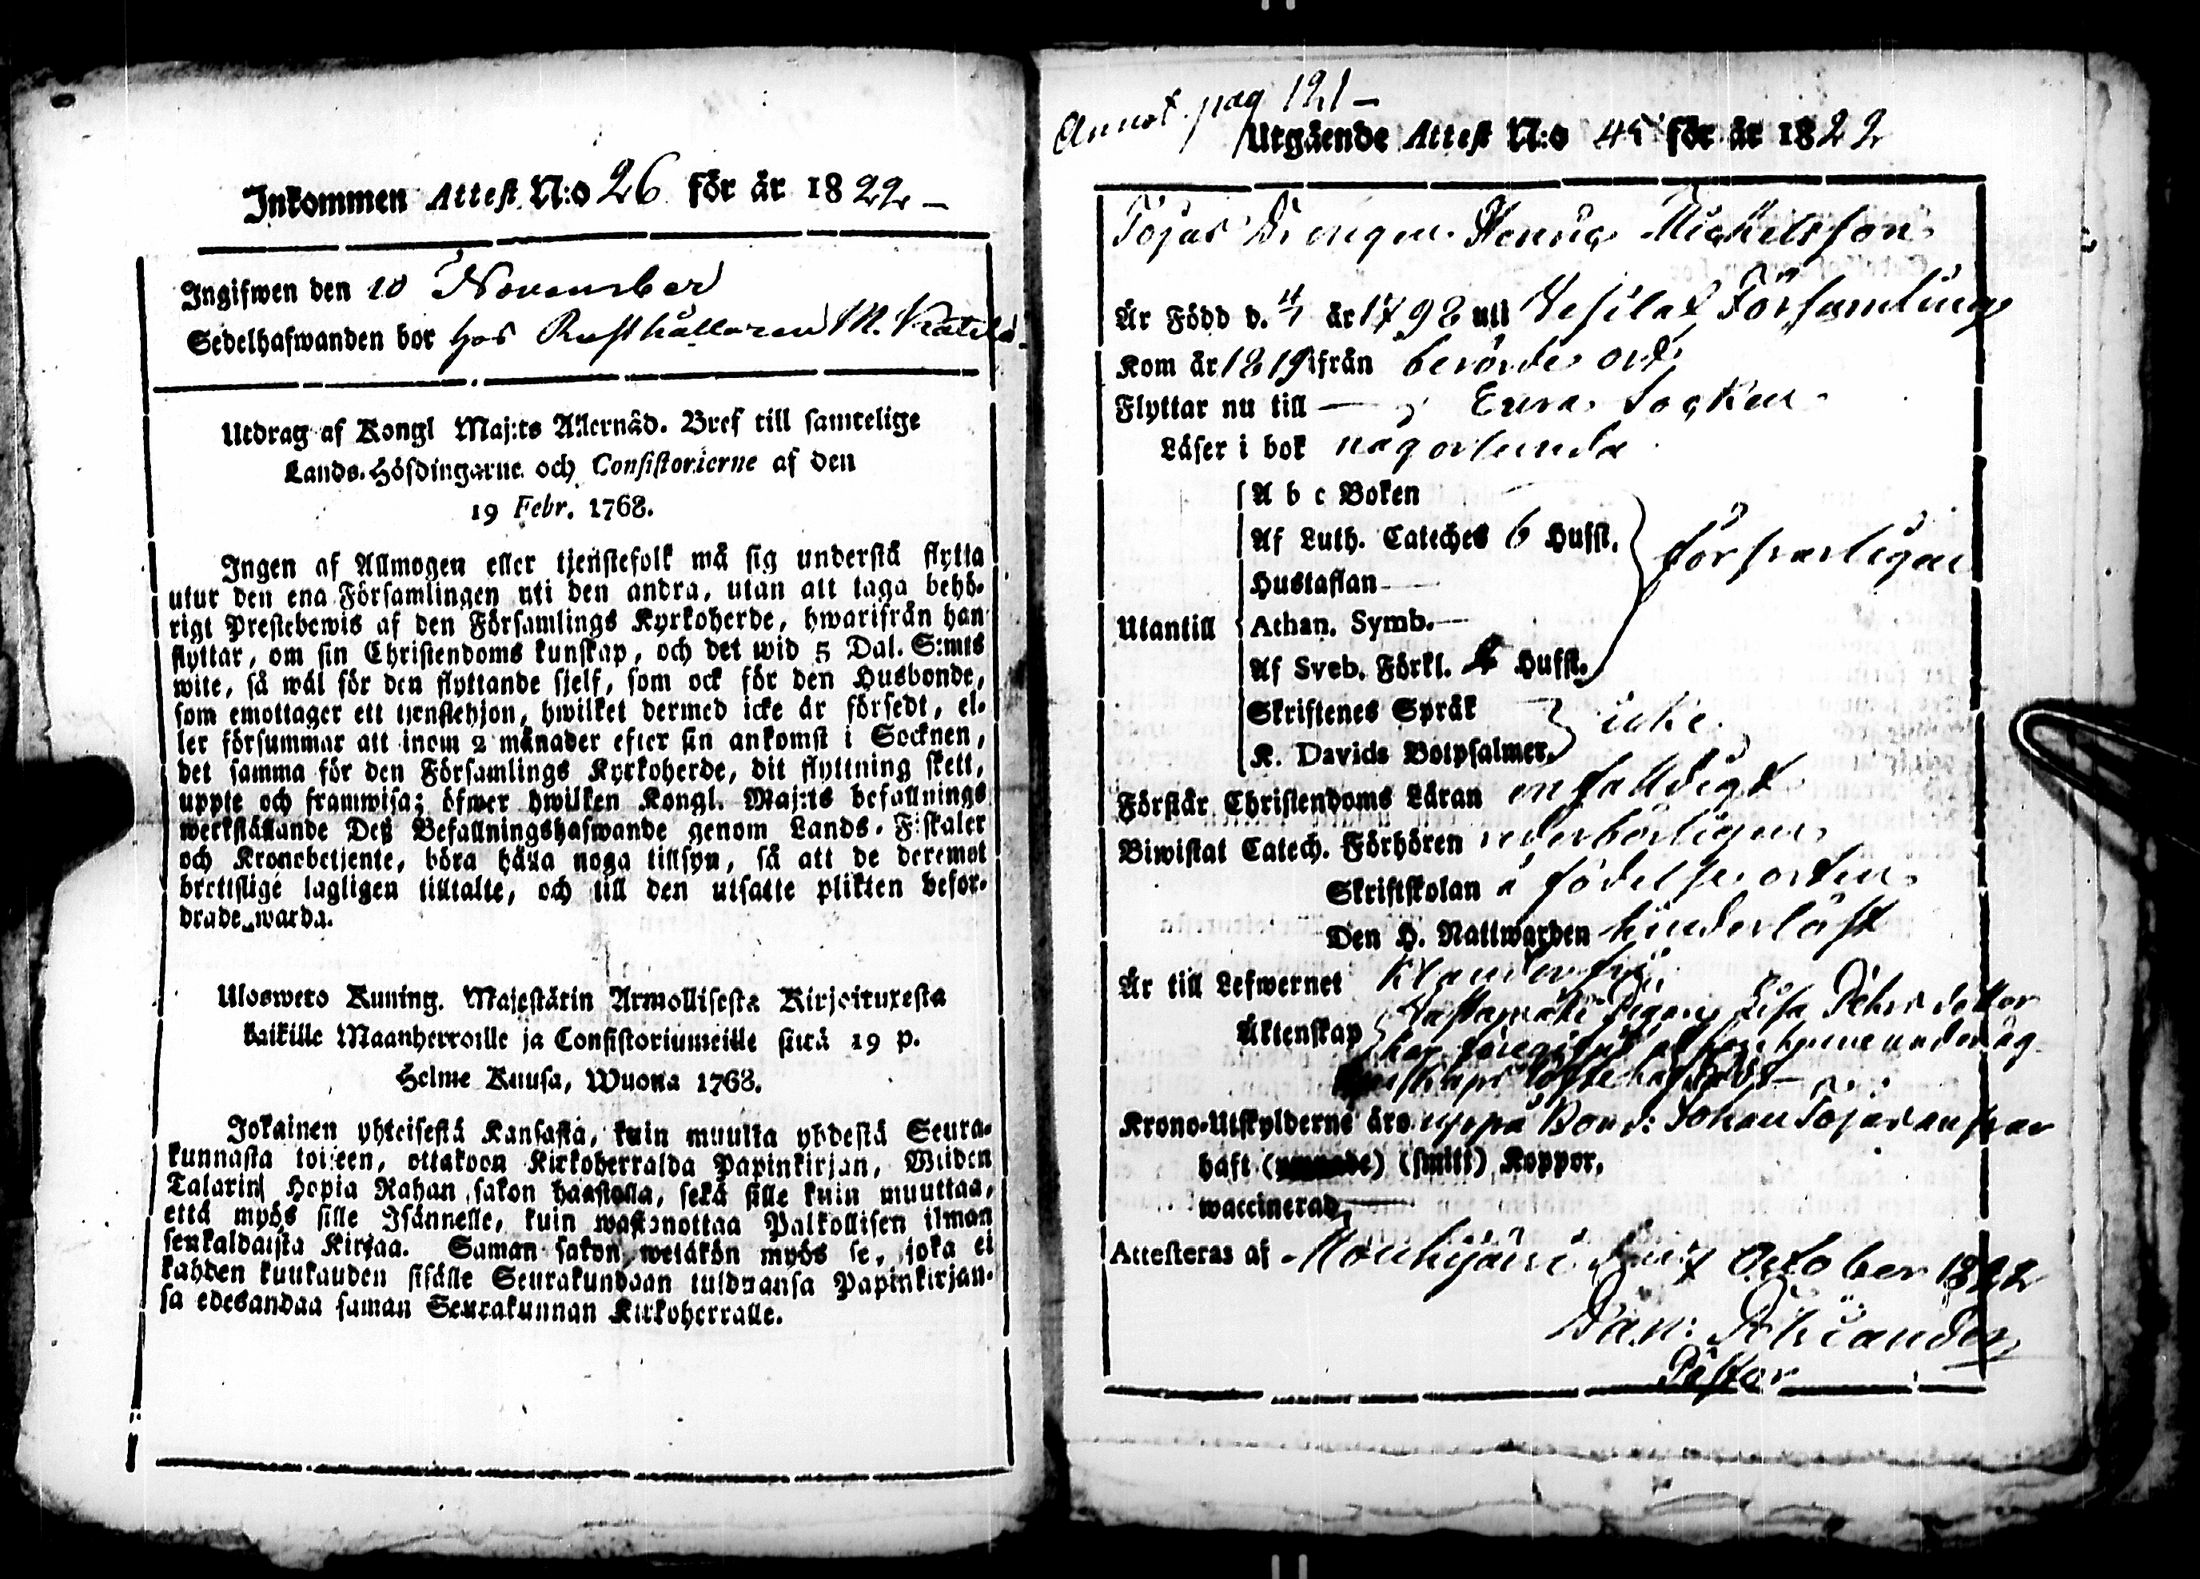 Inkommen Attest N:o 26 för år 1822 –
Ingifwen den 10 November
Sedelhafwanden bor hos Rusthållaren M. Katila
Utdrag af Kongl Maj:ts Allernåd. Bref till samtelige
Lands-Höfdingarne och Consistorierne af den
19 Febr. 1768.
Ingen af Allmogen eller tjenstefolk må sig understå flytta
utur den ena Församlingen uti den andra, utan att taga behö-
rigt Prestebewis af den Församlings Kyrkoherde, hwarifrån han
flyttar, om sin Christendoms kunskap, och det wid 5 Dal. S:mts
wite, så wäl för den flyttande sjelf, som ock för den Husbonde,
som emottager ett tjenstehjon, hwilket dermed icke är försedt, el-
ler försummar att inom 2 månader efter sin ankomst i Socknen,
det samma för den Församlings Kyrkoherde, dit flyttning skett,
uppte och framwisa; öfwer hwilken Kongl. Maj:ts befallnings
werkställande Deß Befallningshafwande genom Lands-Fiskaler
och Kronobetjente, böra hålla noga tillsyn, så att de deremot
brettslige lagligen tilltalte, och till den utsatte plikten befor-
drade warda.
Uloswето Kuning. Majestätin Armollisesta Kirjoituxesta
kaikille Maanherroille ja Consistoriumeille siitä 19 p.
Helme Kuusa, Wuonna 1768.
Jokainen yhteisestä Kansasta, kuin muutta yhdestä Seura-
kunnasta toiseen, ottakoon Kirkoherralda Papinkirjan, Wiiden
Talarin Hopia Rahan sakon haastolla, sekä sille kuin muuttaa,
että myös sille Isännelle, kuin wastanottaa Palkollisen ilman
senkaldaista Kirjaa. Saman sakon wetäkön myös se, joka ei
kahden kuukauden sisälle Seurakundaan tulduansa Papinkirjan-
sa edesandaa saman Seurakunnan Kirkoherralle.
Annot. pag 121 –
Utgående Attest N:o 45 för år 1822
Tojas Drengen Henric Michelsson
Är Född d. år 1798 uti Vesilax Församling
Kom år 1819 ifrån berörde ort
Flyttar nu till — Eura Socken
Läser i bok någorlunda
A b c Boken
Af Luth. Cateches 6 Hufst.
Hustaflan —
försvarligen
Utantill Athan. Symb. —
Af Sveb. Förkl. Hufst.
Skriftenes Språk
icke
K. Davids Botpsalmer.
Förstår Christendoms Läran enfalldigt
Biwistat Catech. Förhören vederbörligen
Skriftskolan å födelse orten
Den H. Nattwarden hinderlöst
Är till Lefwernet klanderfri
Lisa Petersdotter
Äktenskap
Krono-Utskylderne äro uppå Bond: Johan Tojas ansvar
haft () (smitt) Koppor,
waccinerad, —
Attesteras af Mouhijärvi den 7 October 1822
Dan: Polviander
Pastor